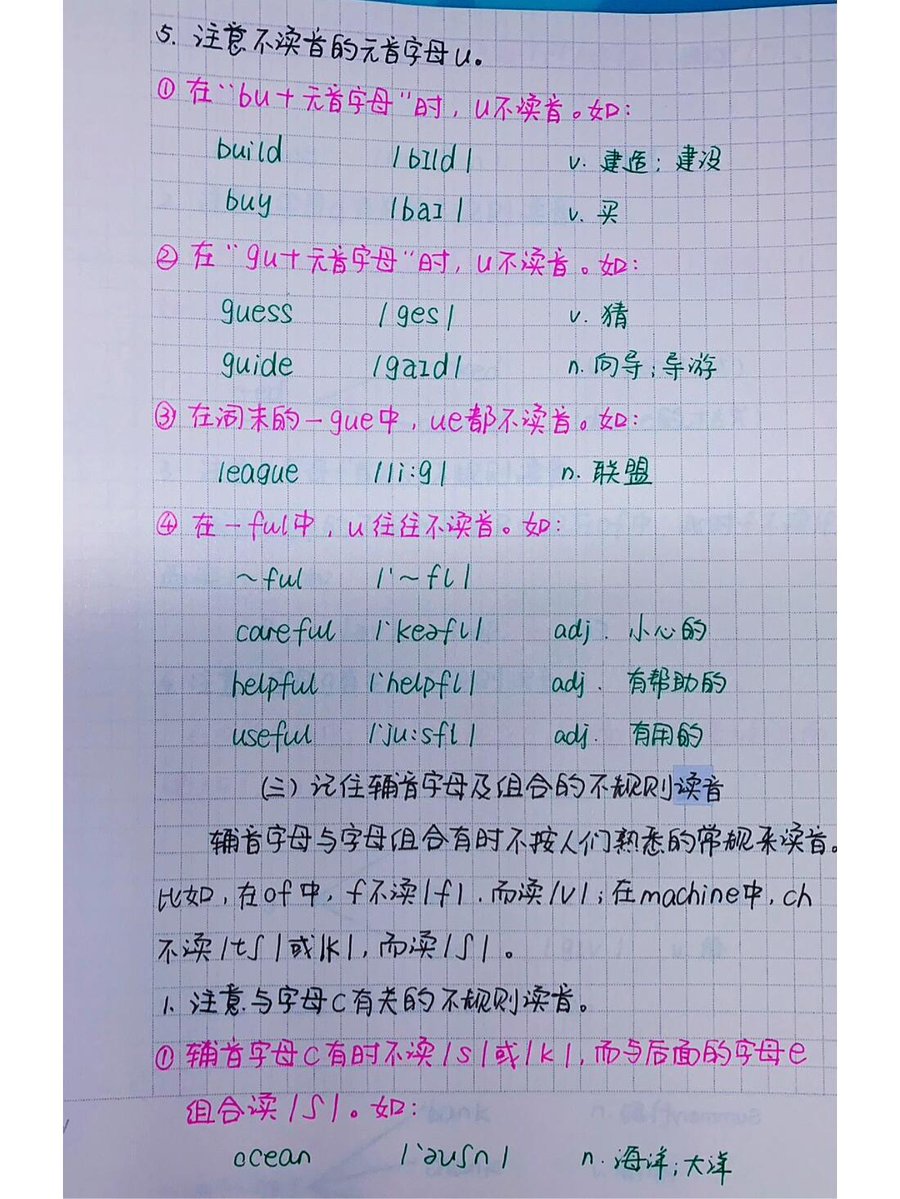 5. 注意不读音的元音字母u。
① 在“bu+元音字母”时，u不读音。如：
build |bɪld| v. 建造；建设
buy |baɪ| v. 买
② 在“gu+元音字母”时，u不读音。如：
guess |ges| v. 猜
guide |gaɪd| n. 向导；导游
③ 在词末的-gue中，ue都不读音。如：
league |li:g| n. 联盟
④ 在-ful中，u往往不读音。如：
~ful |'~fl|
careful |'keəfl| adj. 小心的
helpful |'helpfl| adj. 有帮助的
useful |'ju:sfl| adj. 有用的
(三) 记住辅音字母及组合的不规则读音
辅音字母与字母组合有时不按人们熟悉的常规来读音。
比如，在of中，f不读|f|，而读|v|；在machine中，ch
不读|tʃ|或|k|，而读|ʃ|。
1. 注意与字母c有关的不规则读音。
① 辅音字母c有时不读|s|或|k|，而与后面的字母e
组合读|ʃ|。如：
ocean |'əuʃn| n. 海洋；大洋